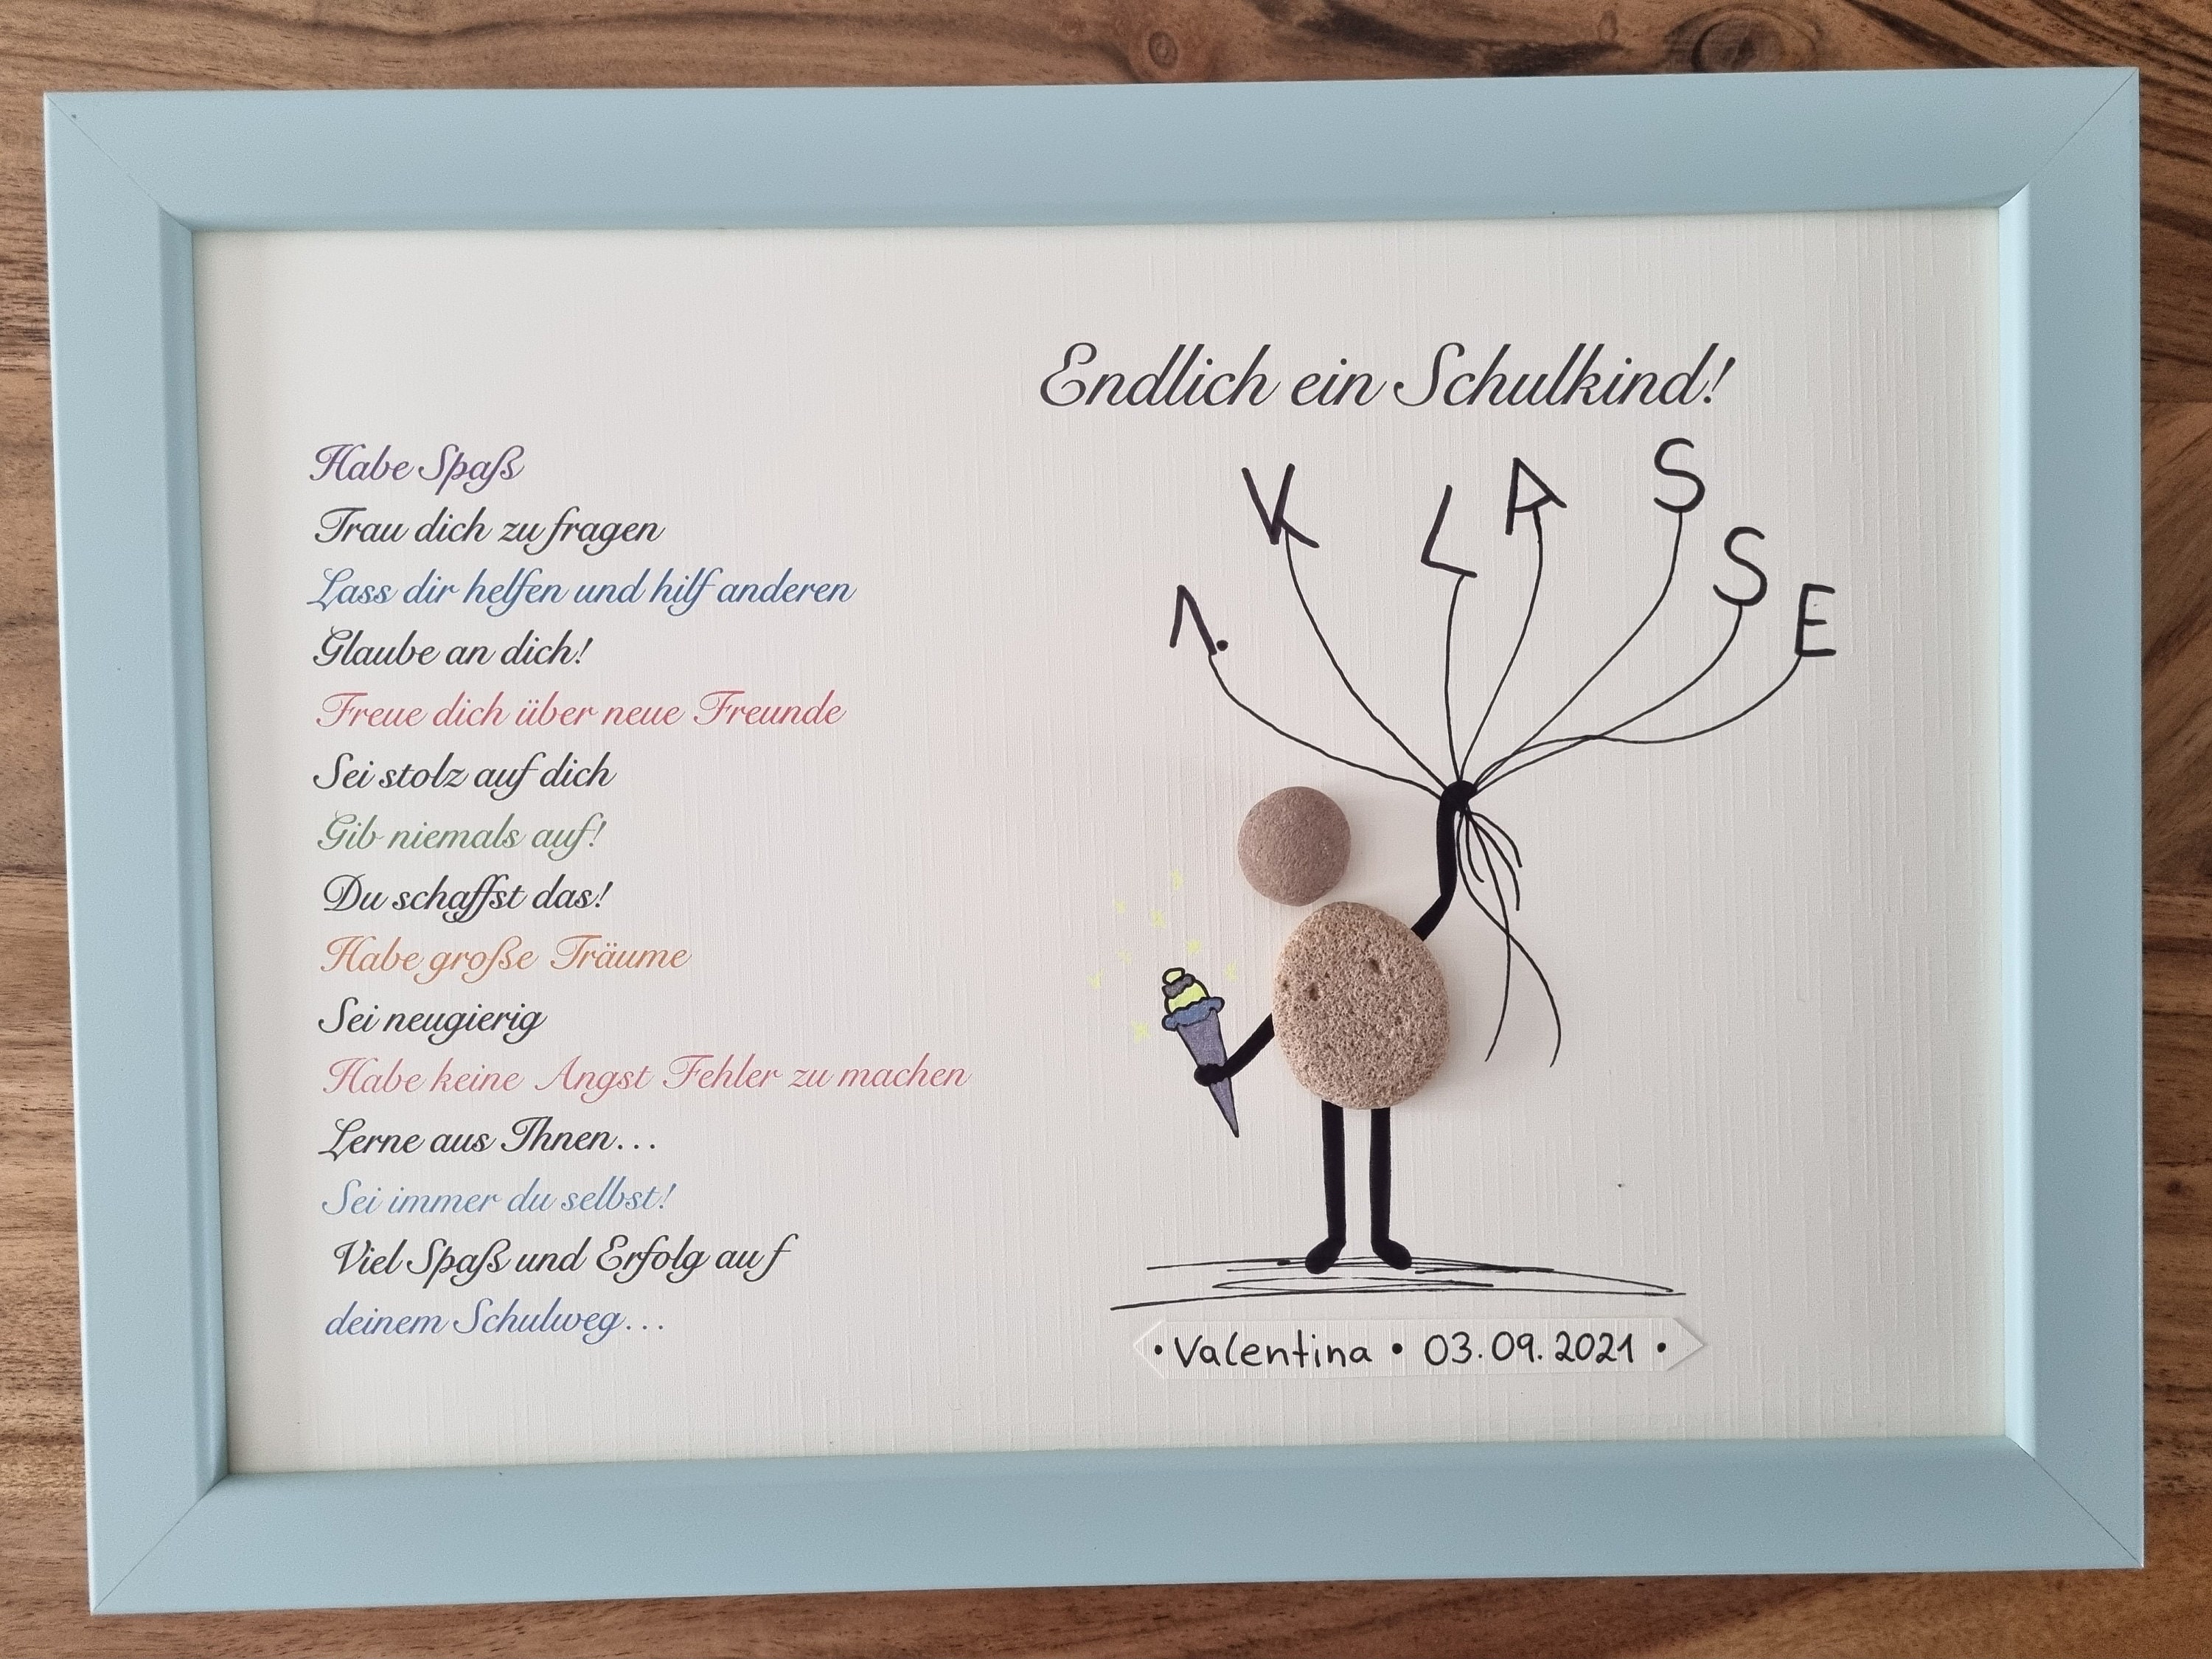 Endlich ein Schulkind!
Habe Spaß
Trau dich zu fragen
Lass dir helfen und hilf anderen
Glaube an dich!
Freue dich über neue Freunde
Sei stolz auf dich
Gib niemals auf!
Du schaffst das!
Habe große Träume
Sei neugierig
Habe keine Angst Fehler zu machen
Lerne aus Ihnen...
Sei immer du selbst!
Viel Spaß und Erfolg auf
deinem Schulweg...
1. KLASSE
• Valentina • 03.09.2021 •